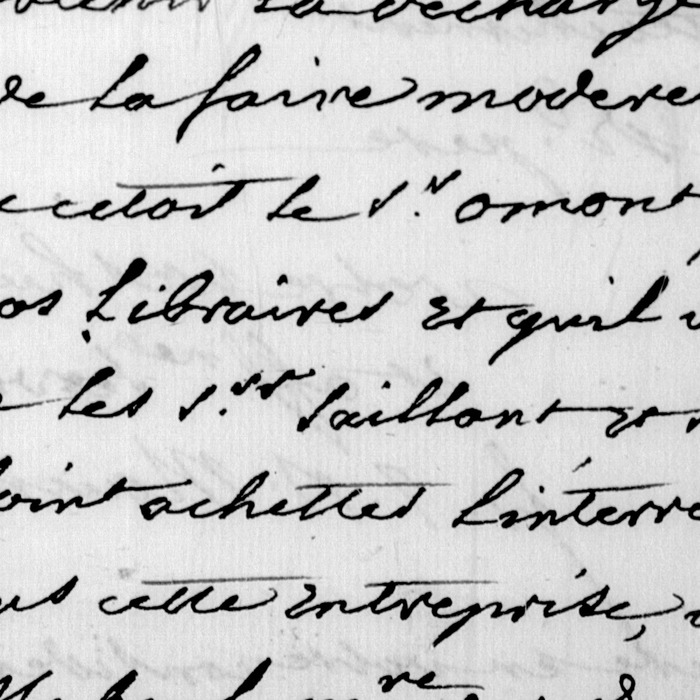 la decharge
de la faire modere
cetoit le S.r omont
os Libraires Et quil
les S.rs Saillant Et
oint achettes Linterre
us cette Entreprise,